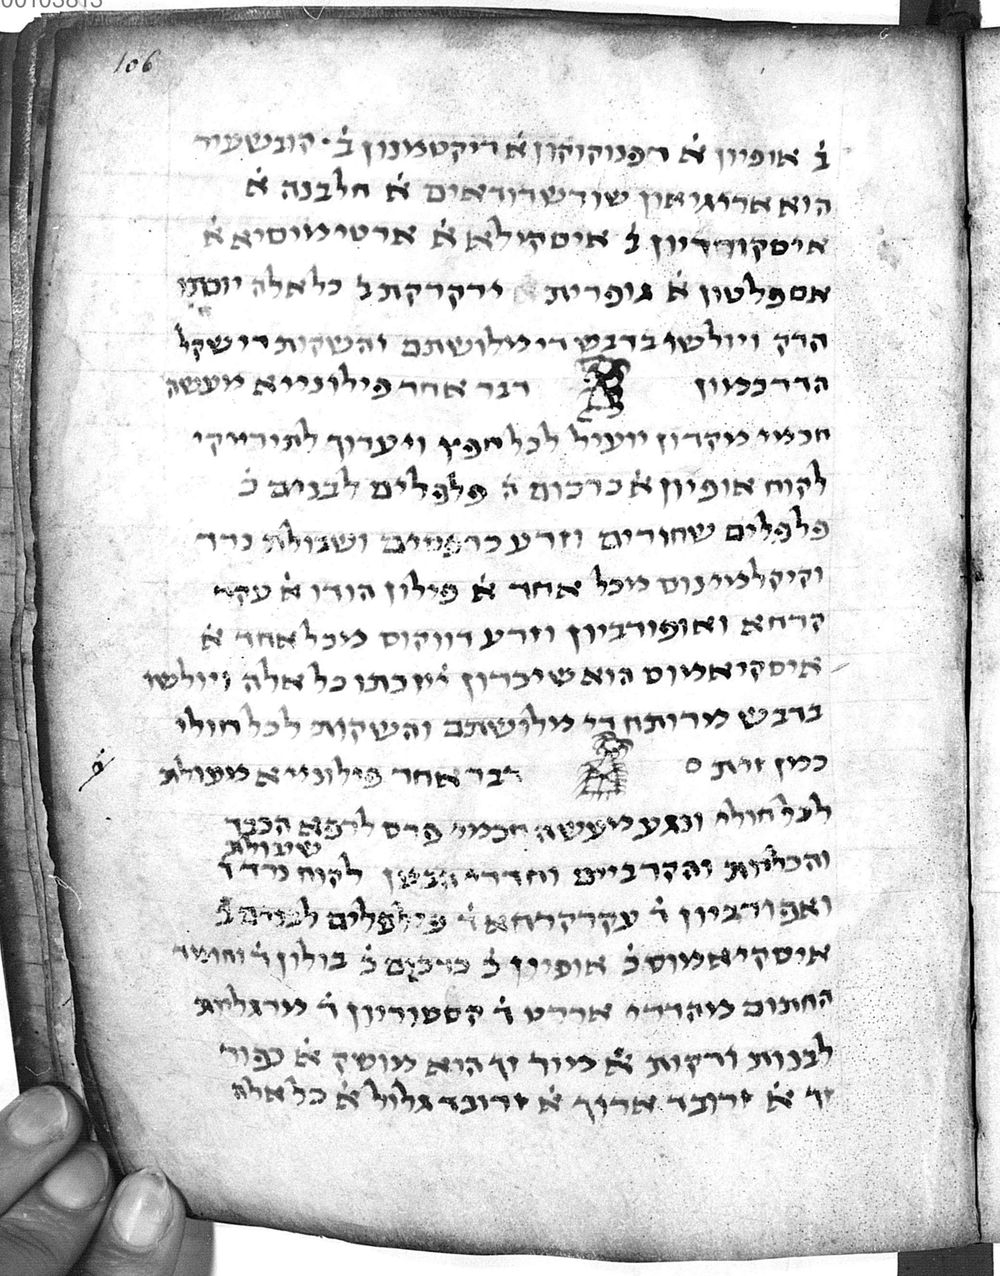 106
ב̇ אופיון א̇ דפנוקוקון א̇ דיקטמנון ב̇ קונשעיר
הוא אריגיאון שודשדודאים א̇ חלבנה א̇
איסקודריון ב̇ איסקילא א̇ ארטימיסיא א̇
אספלטון א̇ גופרית א̇ ירקרקת ב̇ כל אלה
הדק ויולשו בדבש די מלושתם והשקות די שקל
הדרכמון דבר אחר פילונייא מעשה
חכמי מקדון יועיל לכל חפץ ויערוך לתיריקי
לקוח אופיון א̇ כרכום ה̇ פלפלים לבנים כ̇
פלפלים שחורים וזרע כרפסים ושבולת נרד
וקיקלמינוס מכל אחד א̇ פילון הודו א̇ עקר
קרחא ואופורביון וזרע דווקוס מכל אחד א̇
איסקיאמוס הוא שיכרון כל אלה ויולשו
בדבש מרותח די מלושתם והשקות לכל חולי
כמין זית ס דבר אחר פילונייא מעולת
לכל חולי ונגע מעשה חכמי פרס לרפא הכבד
שיבולת
והכליות והקרביים וחדרי הבטן לקוח נרד ד̇
ואפורביון ד̇ עקר קרחא ד̇ פילפלים לבנים
איסקיאמוס כ̇ אופיון כ̇ כרכום כ̇ בולון ד̇ וחומר
החתום ארבע ד̇ קסטוריון ד̇ מרגליות
לבנות ודקות א̇ מיור זך הוא מושק א̇ כפור
זך א̇ זרובד ארוך א̇ זרובד גלול א̇ כל אלה